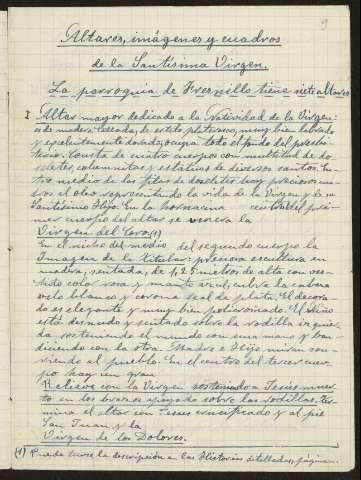 9
Altares, imágenes y cuadros
de la Santísima Virgen.
La parroquia de Fresnillo tiene siete altares
I Altar mayor dedicado a la Natividad de la Virgen:
es de madera tallada, de estilo plateresco, muy bien labrado
y excelentemente dorado; ocupa todo el fondo del presbi-
terio. Consta de cuatro cuerpos con multitud de do-
seletes, columnitas y estatuas de diversos santos. En-
tre medio de las filas de doseletes hay preciosos cua-
dros al óleo representando la vida de la Virgen y de su
Santísimo Hijo. En la hornacina central del pri-
mer cuerpo del altar se venera la
Virgen del (1)
En el nicho del medio del segundo cuerpo la
Imagen de la titular: preciosa escultura en
madera, sentada, de 1,25 metros de alta con ves-
tido color rosa y manto azul; cubre la cabeza
velo blanco y corona real de plata. El decora-
do es elegante y muy bien policromado. El Niño
está desnudo y sentado sobre la rodilla izquier-
da sosteniendo el mundo con una mano y ben-
diciendo con la otra. Madre e Hijo miran son-
riendo al pueblo. En el centro del tercer cuer-
po hay un gran
Relieve con la Virgen sosteniendo a Jesús muer-
to en los brazos apoyado sobre las rodillas. Ter-
mina el altar con Jesús crucificado y al pie
San Juan y la
Virgen de los Dolores.
(1) Puede leerse la descripción en las Historias detalladas, página